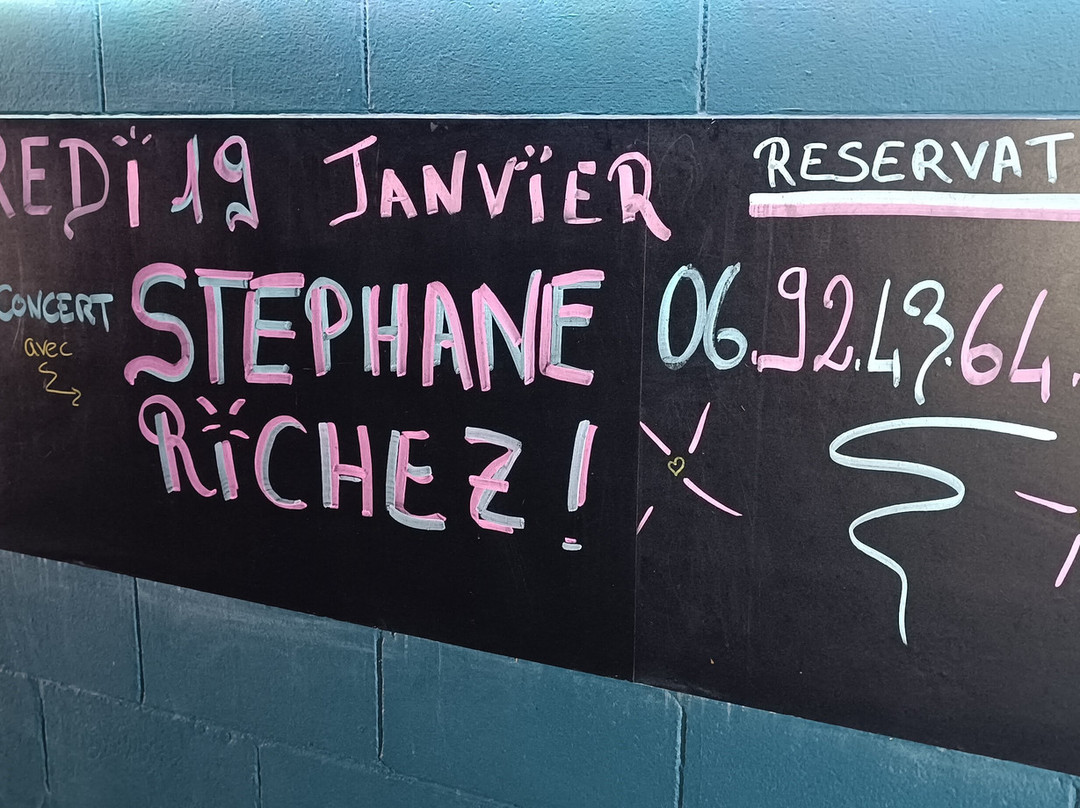 REDI 19 JANVIER
CONCERT
avec
STEPHANE
RICHEZ !
RESERVAT
06.92.43.64.